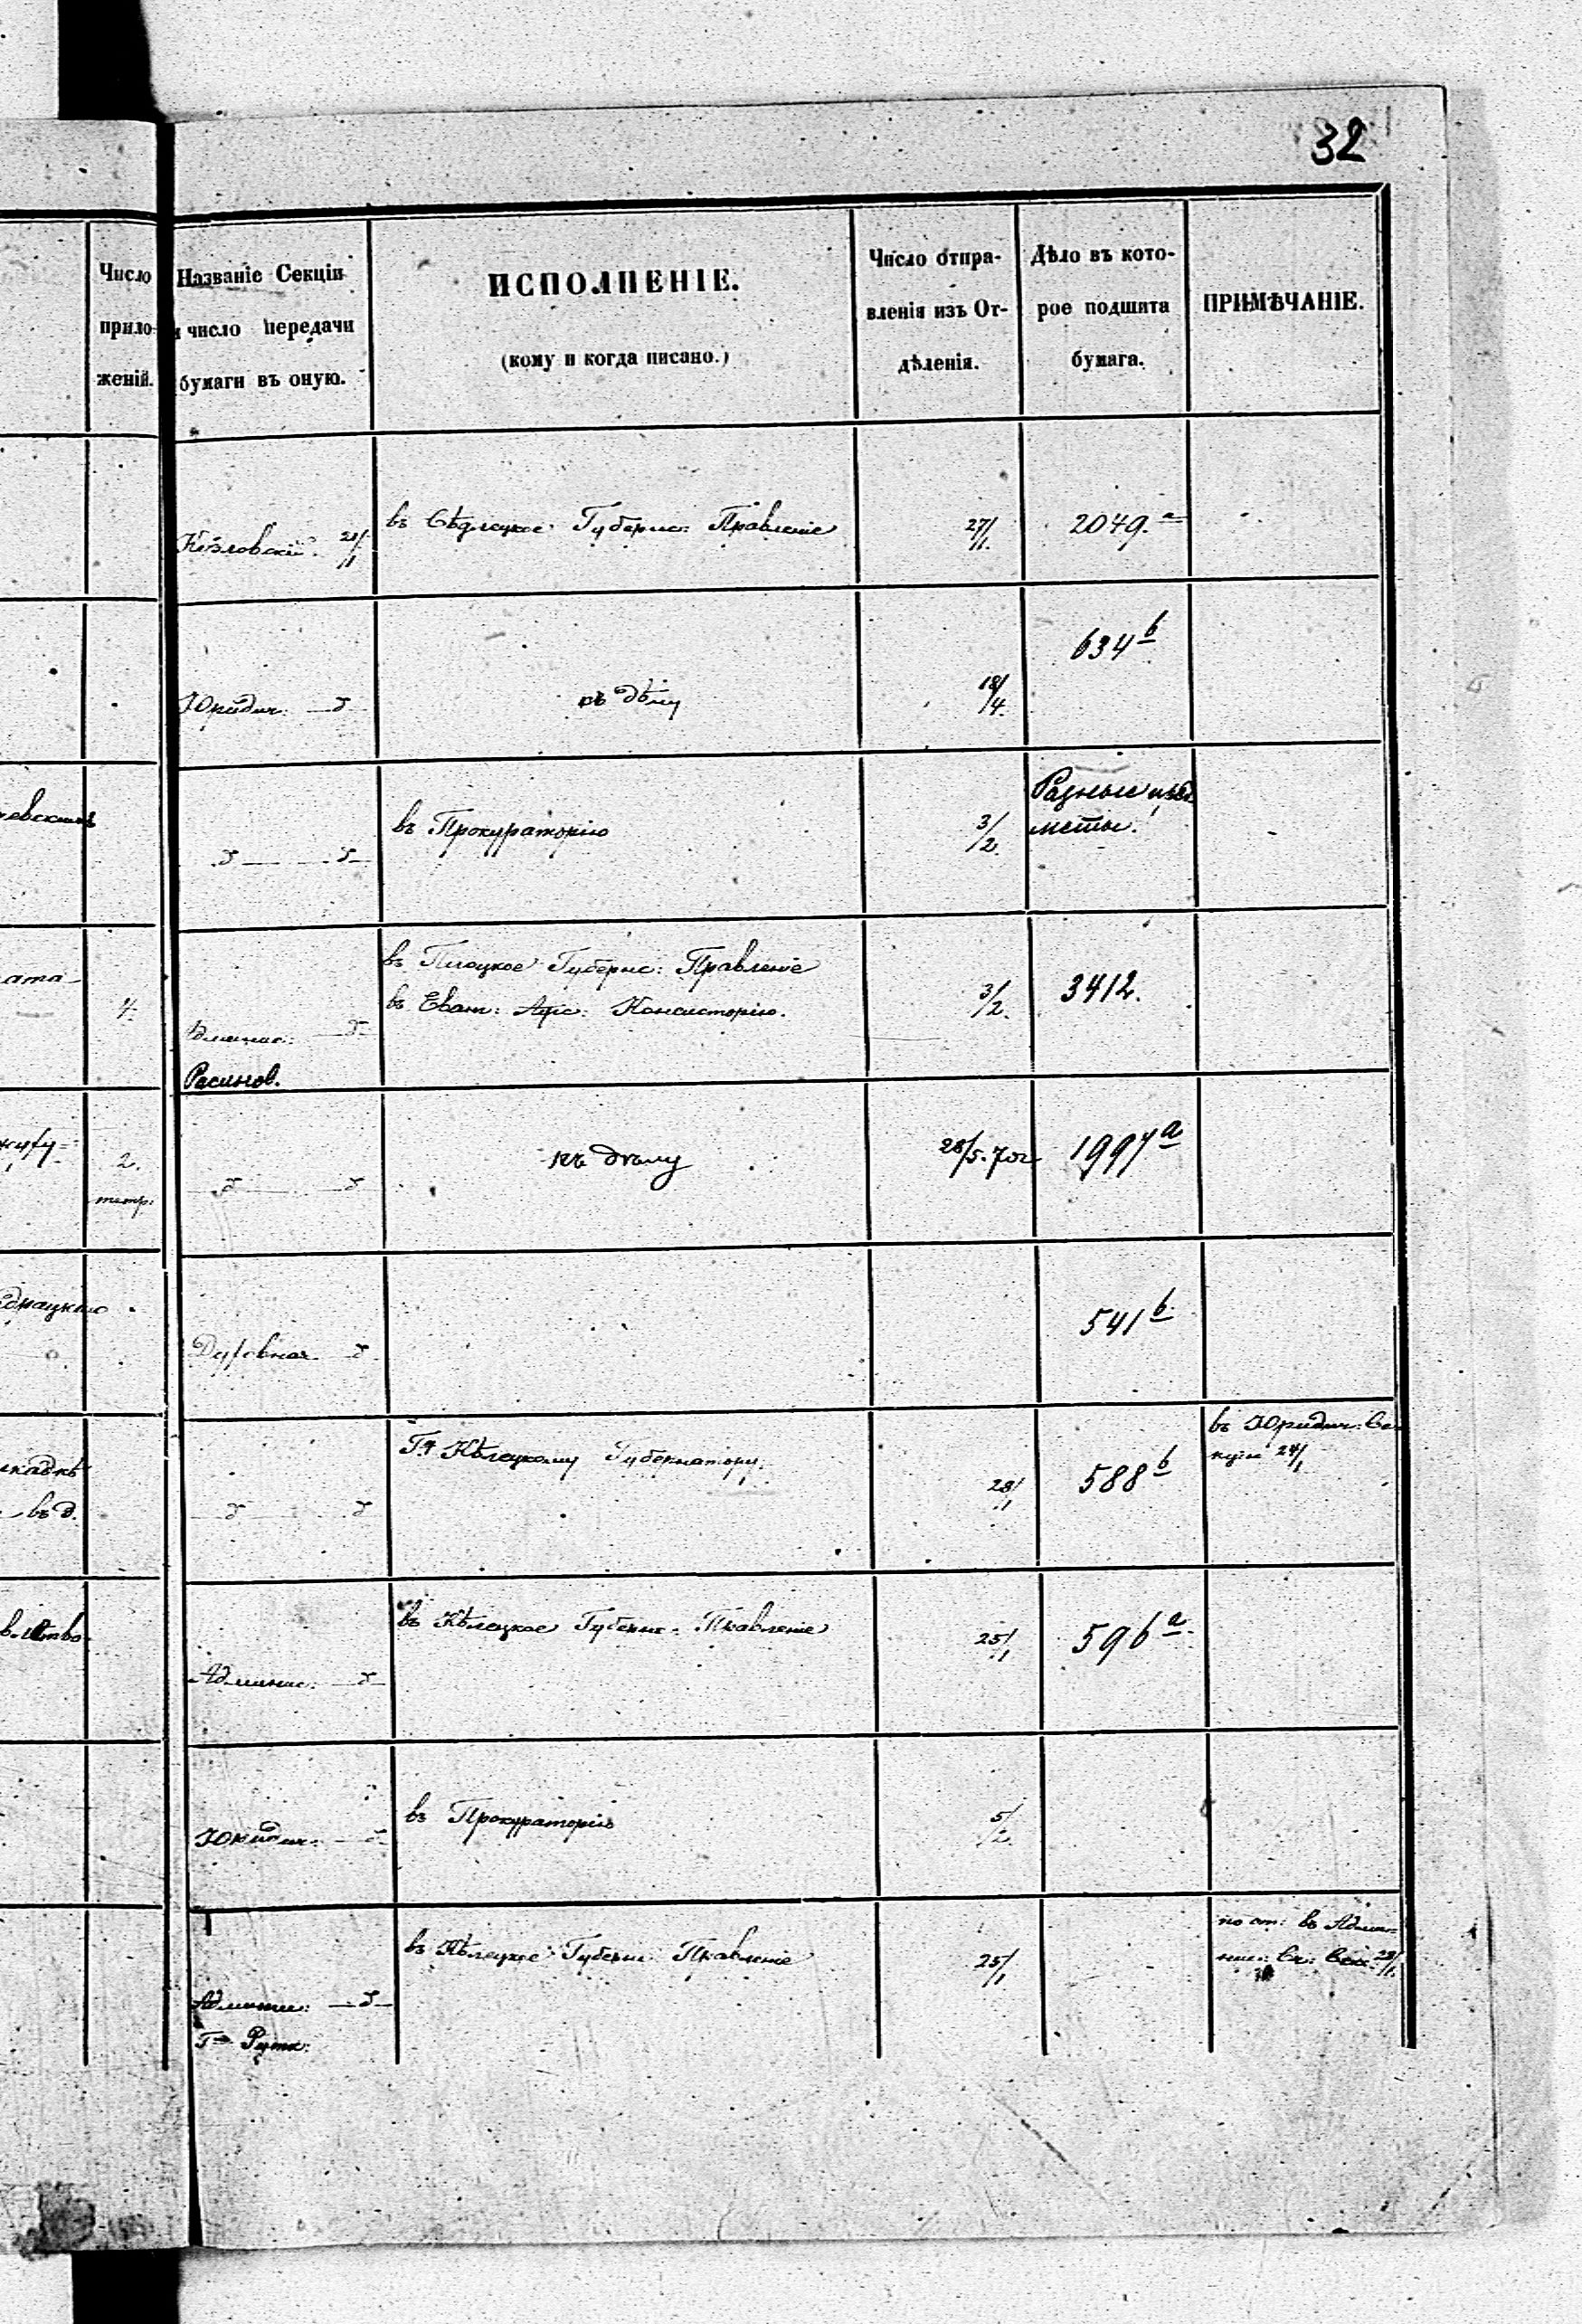 32
Число
прило-
женій.
Названіе Секціи
и число передачи
бумаги въ оную.
ИСПОЛНЕНІЕ.
(кому и когда писано.)
Число отпра-
вленія изъ От-
дѣленія.
Дѣло въ кото-
рое подшита
бумага.
ПРИМѢЧАНІЕ.
Козловскій. 21/1
въ Сѣдлецкое Губернс: Правленіе
27/1.
2049.a
Юридич:
къ дѣлу
18/4.
634 b
въ Прокураторію
3/2.
Разные пред
меты.
4.
Админис:
Расинов.
въ Плоцкое Губернс: Правленіе
въ Еван: Аугс: Консисторію.
3/2.
3412.
2.
тетр:
къ дѣлу
28/5. 70г
1997 a
Духовная
541 b
Г. Кѣлецкому Губернатору.
28/1
588 b
въ Юридич: Се
кціи 24/1
Админис:
въ Кѣлецкое Губернс: Правленіе
25/1
596 a
Юридич:
въ Прокураторію
5/2.
Админис:
въ Кѣлецкое Губернс: Правленіе
25/1
въ Адми-
нис: